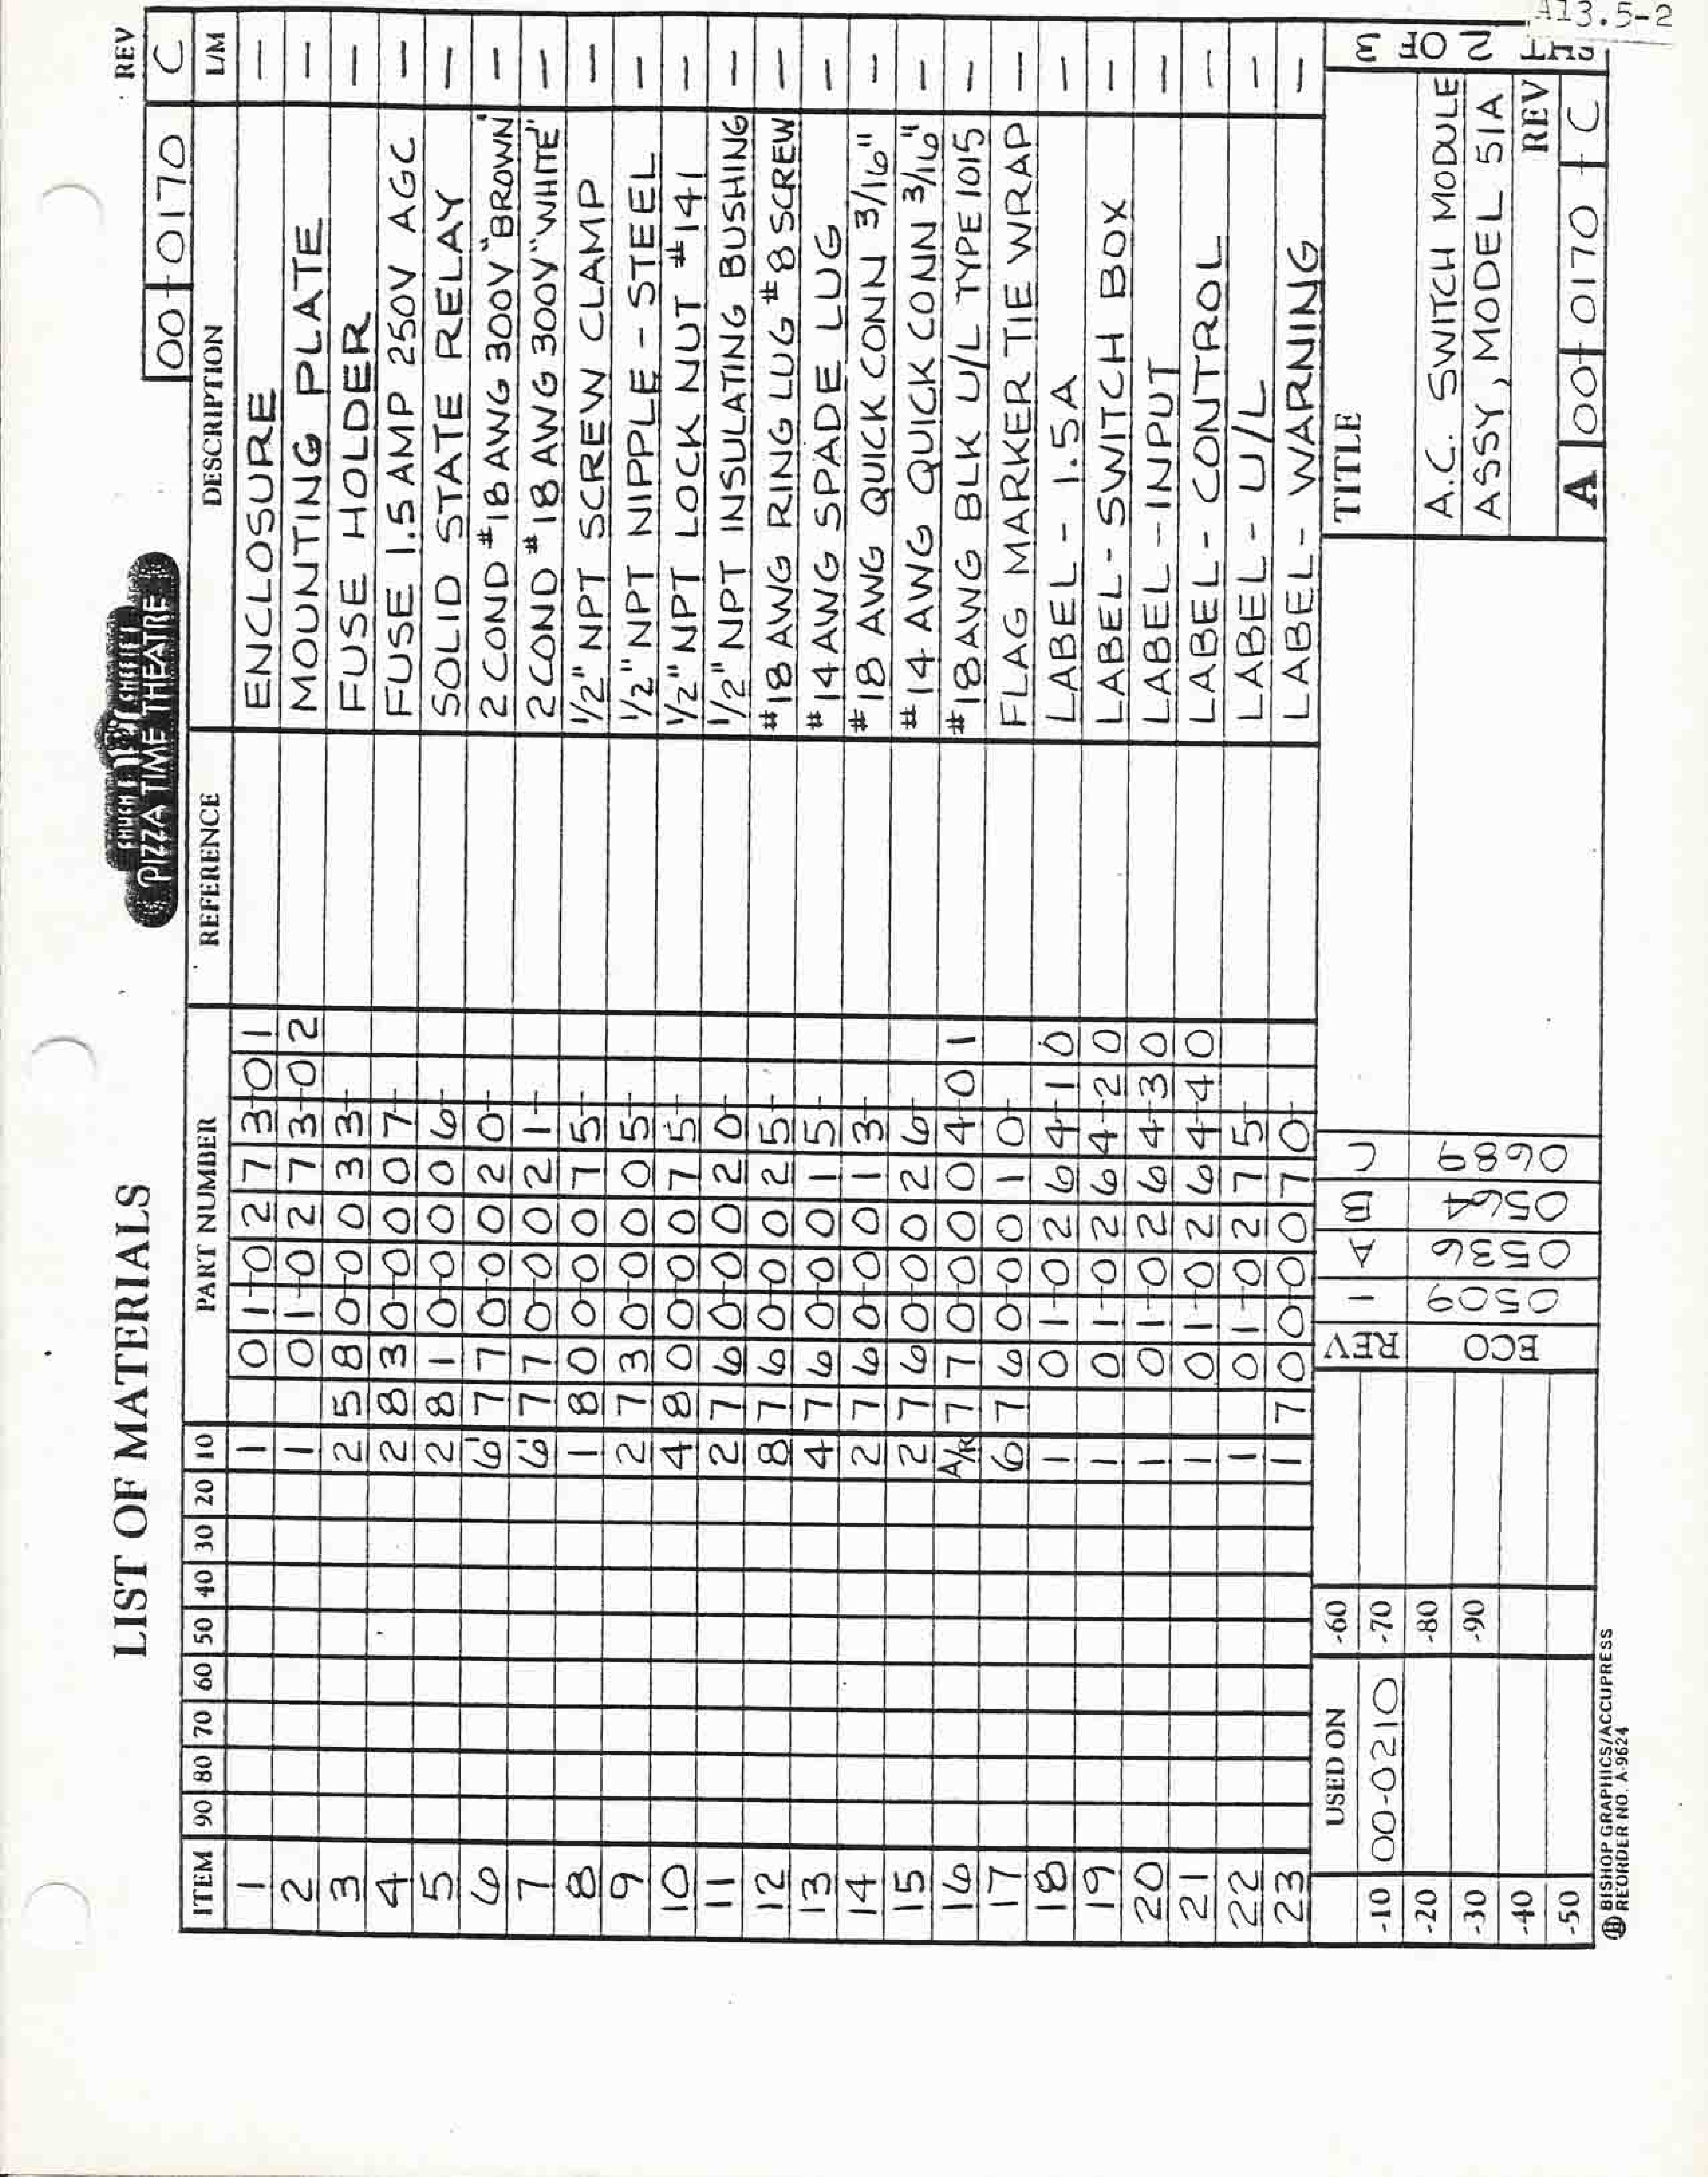 A13.5-2
LIST OF MATERIALS
PIZZA TIME THEATRE
REV
00-0170 C
ITEM 90 80 70 60 50 40 30 20 10 PART NUMBER REFERENCE DESCRIPTION L/M
1 1 01-0273-01 ENCLOSURE –
2 1 01-0273-02 MOUNTING PLATE –
3 2 580-0033- FUSE HOLDER –
4 2 830-0007- FUSE 1.5 AMP 250V AGC –
5 2 810-0006- SOLID STATE RELAY –
6 6' 770-0020- 2 COND #18 AWG 300V "BROWN" –
7 6' 770-0021- 2 COND #18 AWG 300V "WHITE" –
8 1 800-0075- 1/2" NPT SCREW CLAMP –
9 2 730-0005- 1/2" NPT NIPPLE - STEEL –
10 4 800-0075- 1/2" NPT LOCK NUT #141 –
11 2 760-0020 1/2" NPT INSULATING BUSHING –
12 8 760-0025- #18 AWG RING LUG #8 SCREW –
13 4 760-0015- #14 AWG SPADE LUG –
14 2 760-0013- #18 AWG QUICK CONN 3/16" –
15 2 760-0026- #14 AWG QUICK CONN 3/16" –
16 A/R 770-0004-01 #18 AWG BLK U/L TYPE 1015 –
17 6 760-0010- FLAG MARKER TIE WRAP –
18 1 01-0264-10 LABEL - 1.5A –
19 1 01-0264-20 LABEL - SWITCH BOX –
20 1 01-0264-30 LABEL - INPUT –
21 1 01-0264-40 LABEL - CONTROL –
22 1 01-0275- LABEL - U/L –
23 1 700-0070- LABEL - WARNING –
USED ON
-10 00-0210
-20
-30
-40
-50
-60
-70
-80
-90
REV – A B C
ECO 0509 0536 0564 0689
TITLE
A.C. SWITCH MODULE
ASSY, MODEL 51A
REV
A 00-0170-C
SHT 2 OF 3
BISHOP GRAPHICS/ACCUPRESS
REORDER NO. A-9624